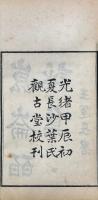 光緒甲辰初
夏長沙葉氏
觀古堂校刊